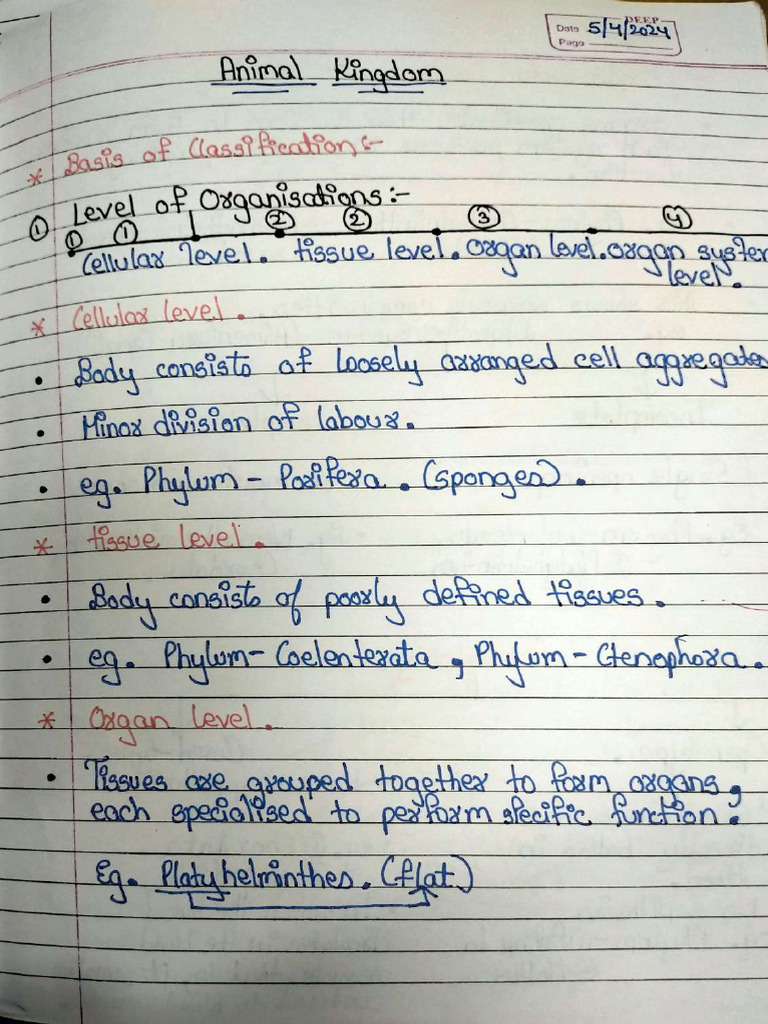 DEEP
Date 5/4/2024
Page
Animal Kingdom
* Basis of Classification:-
① Level of Organisations:-
① ① ① ② ③ ④
Cellular level. tissue level. organ level. organ system
level.
* Cellular level.
• Body consists of loosely arranged cell aggregates
• Minor division of labour.
• eg. Phylum - Porifera. (sponges).
* tissue level.
• Body consists of poorly defined tissues.
• eg. Phylum - Coelenterata, Phylum - Ctenophora.
* Organ level.
• Tissues are grouped together to form organs,
each specialised to perform specific function.
Eg. Platyhelminthes. (flat)